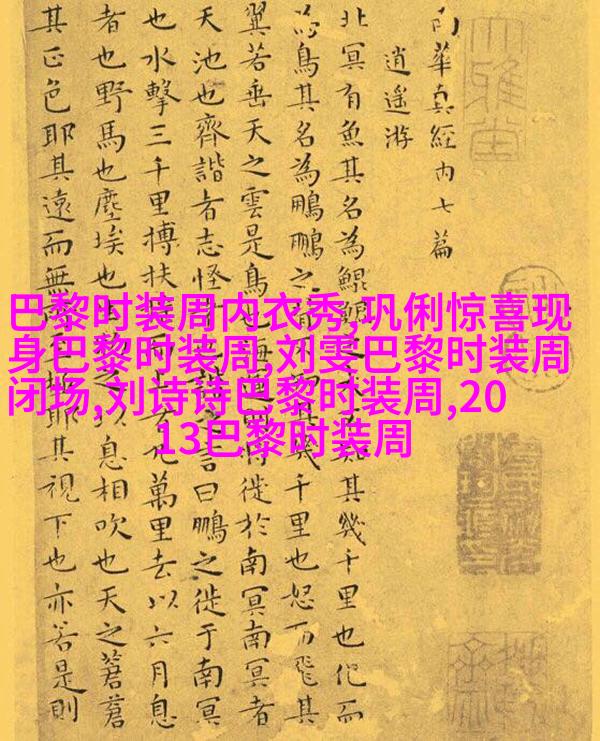 巴黎时装周内衣秀,巩俐惊喜现
身巴黎时装周,刘雯巴黎时装周
闭场,刘诗诗巴黎时装周,20
13巴黎时装周
南華真經内七篇
逍遥游
北冥有魚其名為鯤鯤之大不知其幾千里也化而
為鳥其名為鵬鵬之背不知其幾千里也怒而飛其
翼若垂天之雲是鳥也海運則將徙於南冥南冥者
天池也齊諧者志怪者也諧之言曰鵬之徙于南冥
也水擊三千里搏扶搖而上者九萬里去以六月息
者也野馬也塵埃也生物之以息相吹也天之蒼蒼
其正色耶其遠而無所至極耶其視下也亦若是則